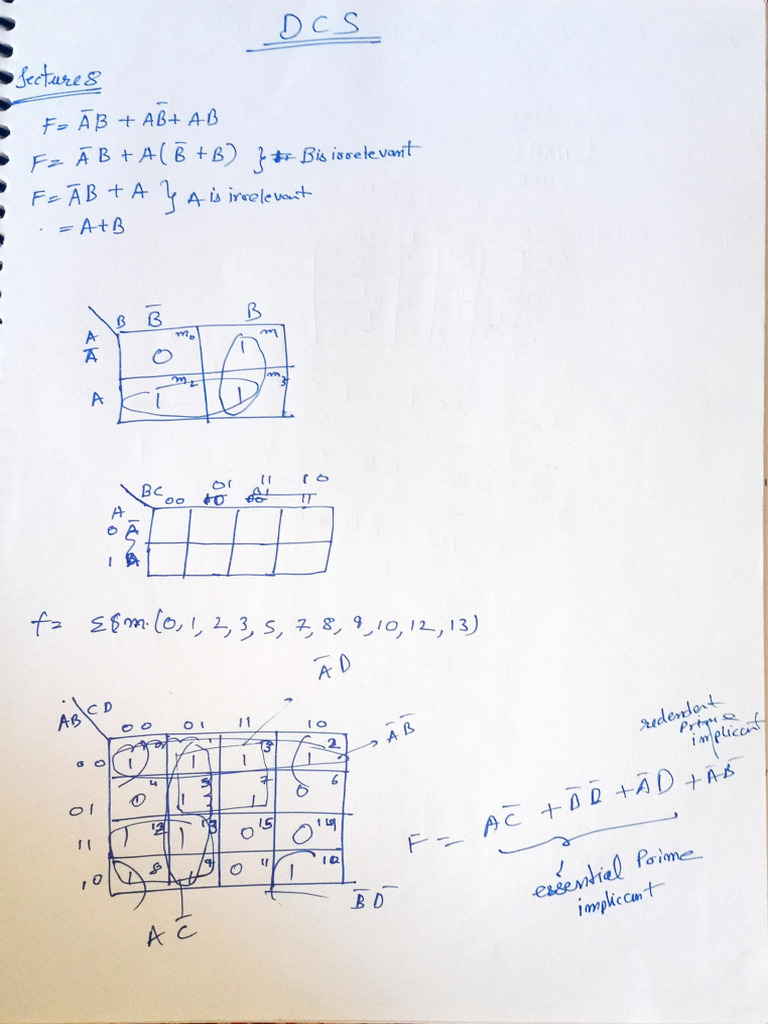 DCS
Lecture 8
F = A̅B + AB̅ + AB
F = A̅B + A(B̅ + B) } B is irrelevant
F = A̅B + A } A is irrelevant
= A+B
B B̅ B
A
A̅ 0 m₀ 1 m₁
A 1 m₂ 1 m₃
BC 00 01 11 10
11
A
0 A̅
1 A
f = Σm(0, 1, 2, 3, 5, 7, 8, 9, 10, 12, 13)
A̅D
AB CD 00 01 11 10
00 1 1 1 3 1 2
A̅B̅
01 0 4 1 5 1 7 0 6
11 1 12 1 13 0 15 0 14
10 1 8 1 9 0 11 1 10
B̅D̅
AC̅
redendent
Prime
implicant
F = AC̅ + B̅D̅ + A̅D + A̅B̅
essential Prime
impliccant